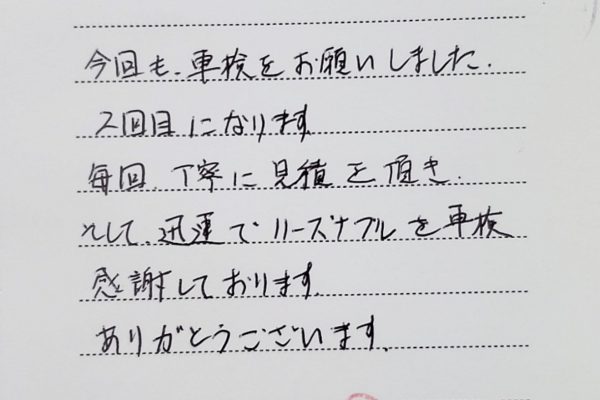 今回も、車検をお願いしました。
2回目になります。
毎回、丁寧に見積を頂き、
そして、迅速でリーズナブルな車検
感謝しております。
ありがとうございます。